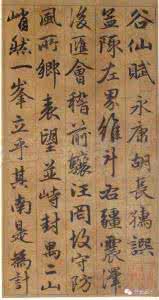 谷仙賦永康胡長孺譔
孟陬左界維斗右疆震澤
後匯會稽前驤汪罔故守防
風所鄉表望並峙封禺二山
峭然一峯立乎其南是為計